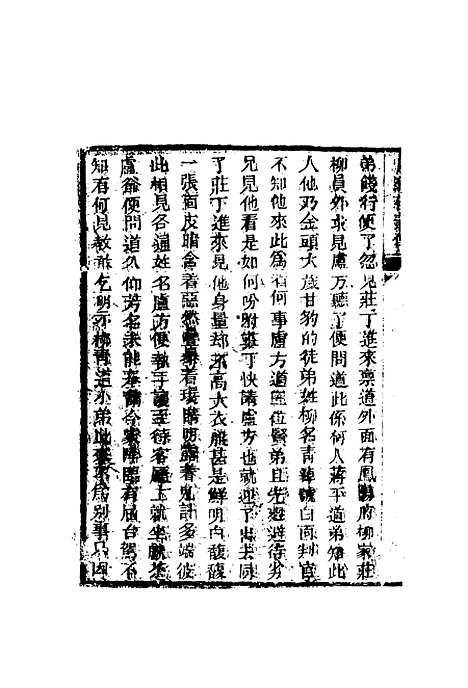 弟餞行便了忽見莊丁進來禀道外面有鳳陽府柳家莊
柳員外求見盧方聽了便問道此係何人蔣平道弟知此
人他乃金頭太歲甘豹的徒弟姓柳名青綽號白面判官
不知他來此爲着何事盧方道三位賢弟且先避避待劣
兄見他看是如何吩咐莊丁快請盧方也就迎了出去同
了莊丁進來見他身量却不高大衣服甚是鮮明白馥馥
一張面皮暗含着惡態疊暴着環睛明露着鬼計多端彼
此相見各通姓名盧方便執手讓至待客廳上就坐獻茶
盧爺便問道久仰芳名未能奉謁今蒙降臨有屈台駕不
知有何見教敢乞明示柳青道小弟此來不爲別事只因